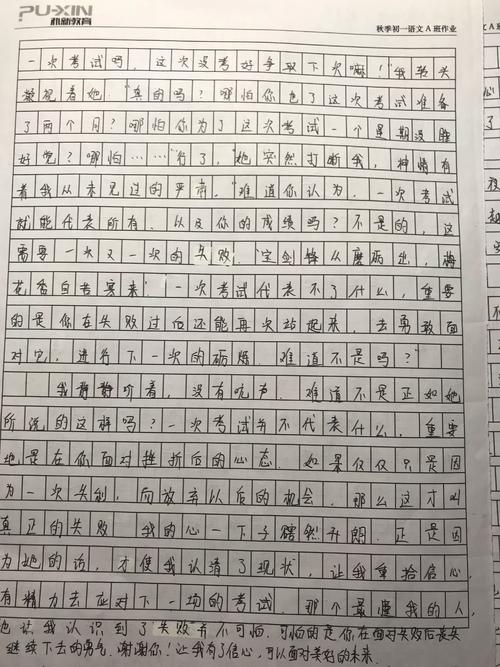 PUXIN
朴新教育
秋季初一语文A班作业
一次考试吗，这次没考好争取下次嘛！"我转头
凝视着她，"真的吗？哪怕你也了这次考试准备
了两个月？哪怕你为了这次考试一个星期没睡
好觉？哪怕……"行了，"她突然打断我，神情有
着我从未见过的平静，"难道你认为，一次考试
就能代表所有，以及你的成绩吗？不是的，这
需要一次又一次的失败，"宝剑锋从磨砺出，梅
花香自苦寒来"一次考试代表不了什么，重要
的是你在失败过后还能再次站起来，去勇敢面
对它，进行下一次的砺炼，难道不是吗？"
我静静听着，没有吭声，难道不是正如她
所说的这样吗？一次考试并不代表什么，重要
地是在你面对挫折后的心态，如果仅仅只是因
为一次失利，而放弃以后的机会，那么这才叫
真正的失败 我的心一下子豁然开朗，正是因
为她的话，才使我认清了现状，让我重拾信心，
有精力去应对下一场的考试，那个最懂我的人，
也让我认识到了"失败并不可怕，可怕的是你在面对失败后丧失
继续下去的勇气，谢谢你！让我有了信心，可以面对美好的未来